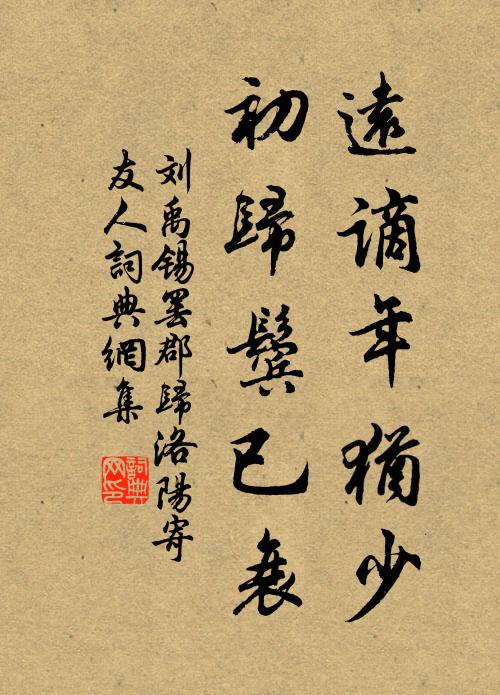 遠謫年猶少
初歸鬢已衰
刘禹锡罢郡歸洛陽寄
友人詞典網集
詞典
网印